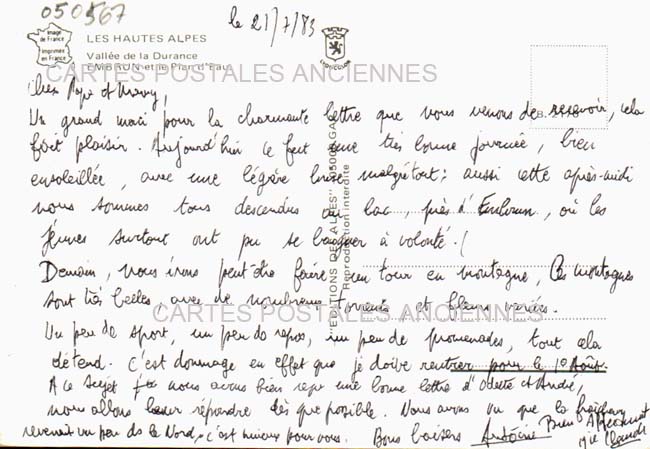 050567
le 21/7/83
Image de France
Imprimée en France
LES HAUTES ALPES
Vallée de la Durance
EMBRUN et le Plan d'Eau
LYOUCOLOR
CARTES POSTALES ANCIENNES
Cher Papé et Mamy,
Un grand merci pour la charmante lettre que nous venons de recevoir, cela
fait plaisir. Aujourd'hui ce fut une très bonne journée, bien
ensoleillée, avec une légère brise malgré tout; aussi cette après-midi
nous sommes tous descendus au lac, près d'Embrun, où les
jeunes surtout ont pu se baigner à volonté. !
Demain, nous irons peut-être faire un tour en montagne, Ces montagnes
sont très belles, avec de nombreux torrents et fleurs variées.
CARTES POSTALES ANCIENNES
Un peu de sport, un peu de repos, un peu de promenades, tout cela
détend. C'est dommage en effet que je doive rentrer pour le 1° Août.
A ce sujet nous avons bien reçu une bonne lettre d'Odette et André,
nous allons leur répondre dès que possible. Nous avons vu que la fraîcheur
revenait un peu ds le Nord, c'est mieux pour vous. Bons baisers
Bien Affectueusement
Claude
EDITIONS DES ALPES" 05000 GAP
Reproduction interdite